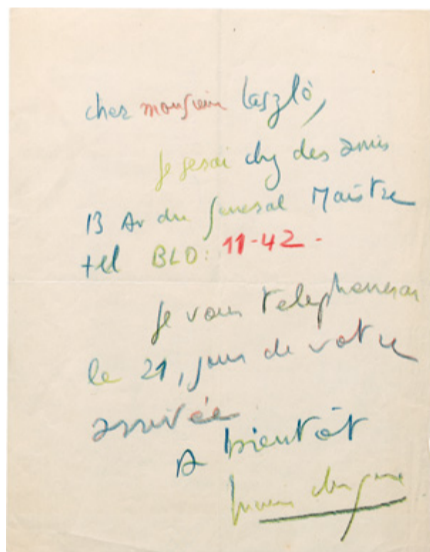 cher monsieur Laszló,
Je serai chez des amis
13 Av du General Maistre
tel BLO: 11-42-
Je vous telephonerai
le 21, jour de votre
arrivée
A bientôt